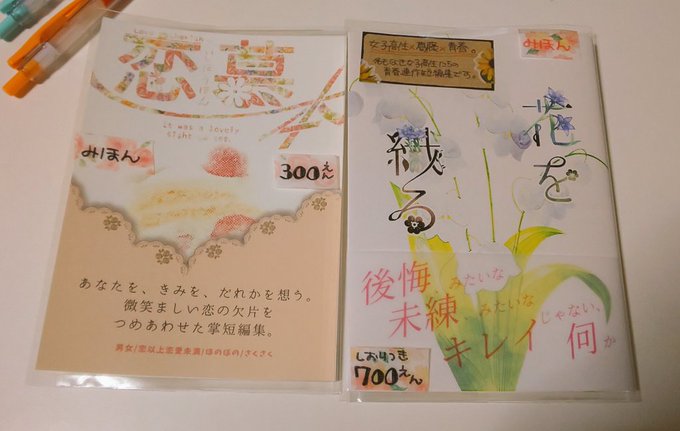 恋慕
it was a lovely
sight
みほん
300えん
あなたを、きみを、だれかを想う。
微笑ましい恋の欠片を
つめあわせた掌短編集。
男女/恋以上恋愛未満/ほのぼの/さくさく
女子高生×葛藤×青春。
青春連作短編集です。
みほん
花を
紋る
後悔みたいな
未練みたいな
キレイじゃない、何か
しおりつき
700えん